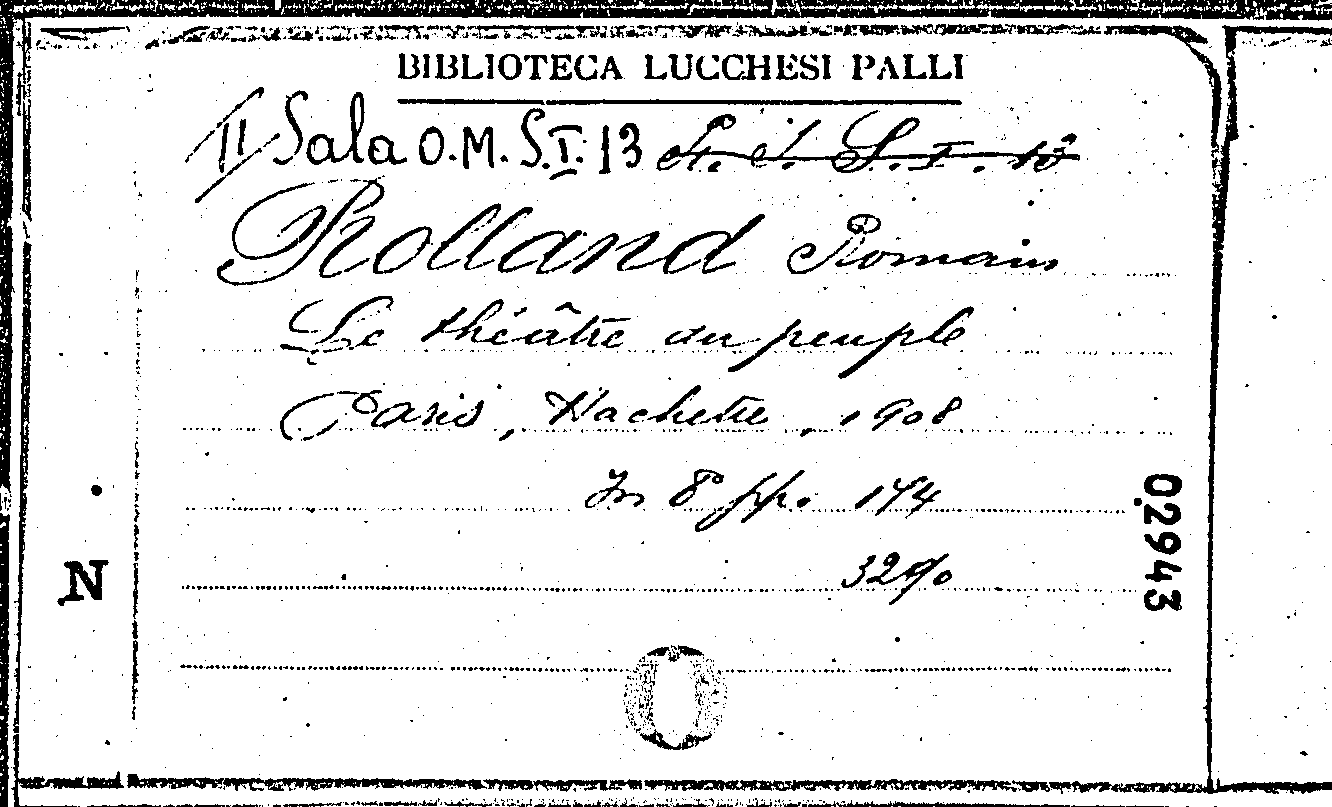 BIBLIOTECA LUCCHESI PALLI
II Sala O.M. S.I. 13 S.I. 13
Rolland Romain
Le théâtre du peuple
Paris, Hachette, 1908
In 8° pp.
N
02943